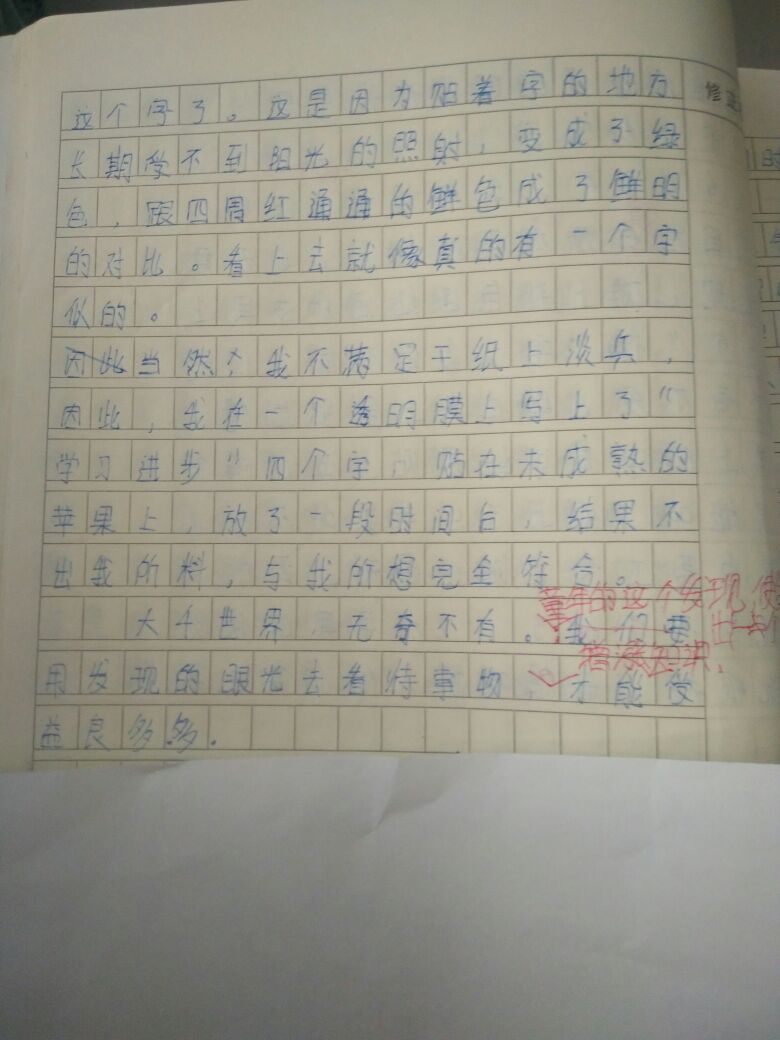 这个字了。这是因为贴着字的地方 修正
长期受不到阳光的照射，变成了绿
色，跟四周红通通的鲜色成了鲜明
的对比。看上去就像真的有一个字
似的。
因此当然，我不满足于纸上谈兵，
因此，我在一个透明膜上写上了“
学习进步”四个字，贴在未成熟的
苹果上，放了一段时间后，结果不
出我所料，与我所想完全符合。
童年的这个发现
大千世界，无奇不有。我们要
增涨知识，
用发现的眼光去看待事物，才能使
益良多多.